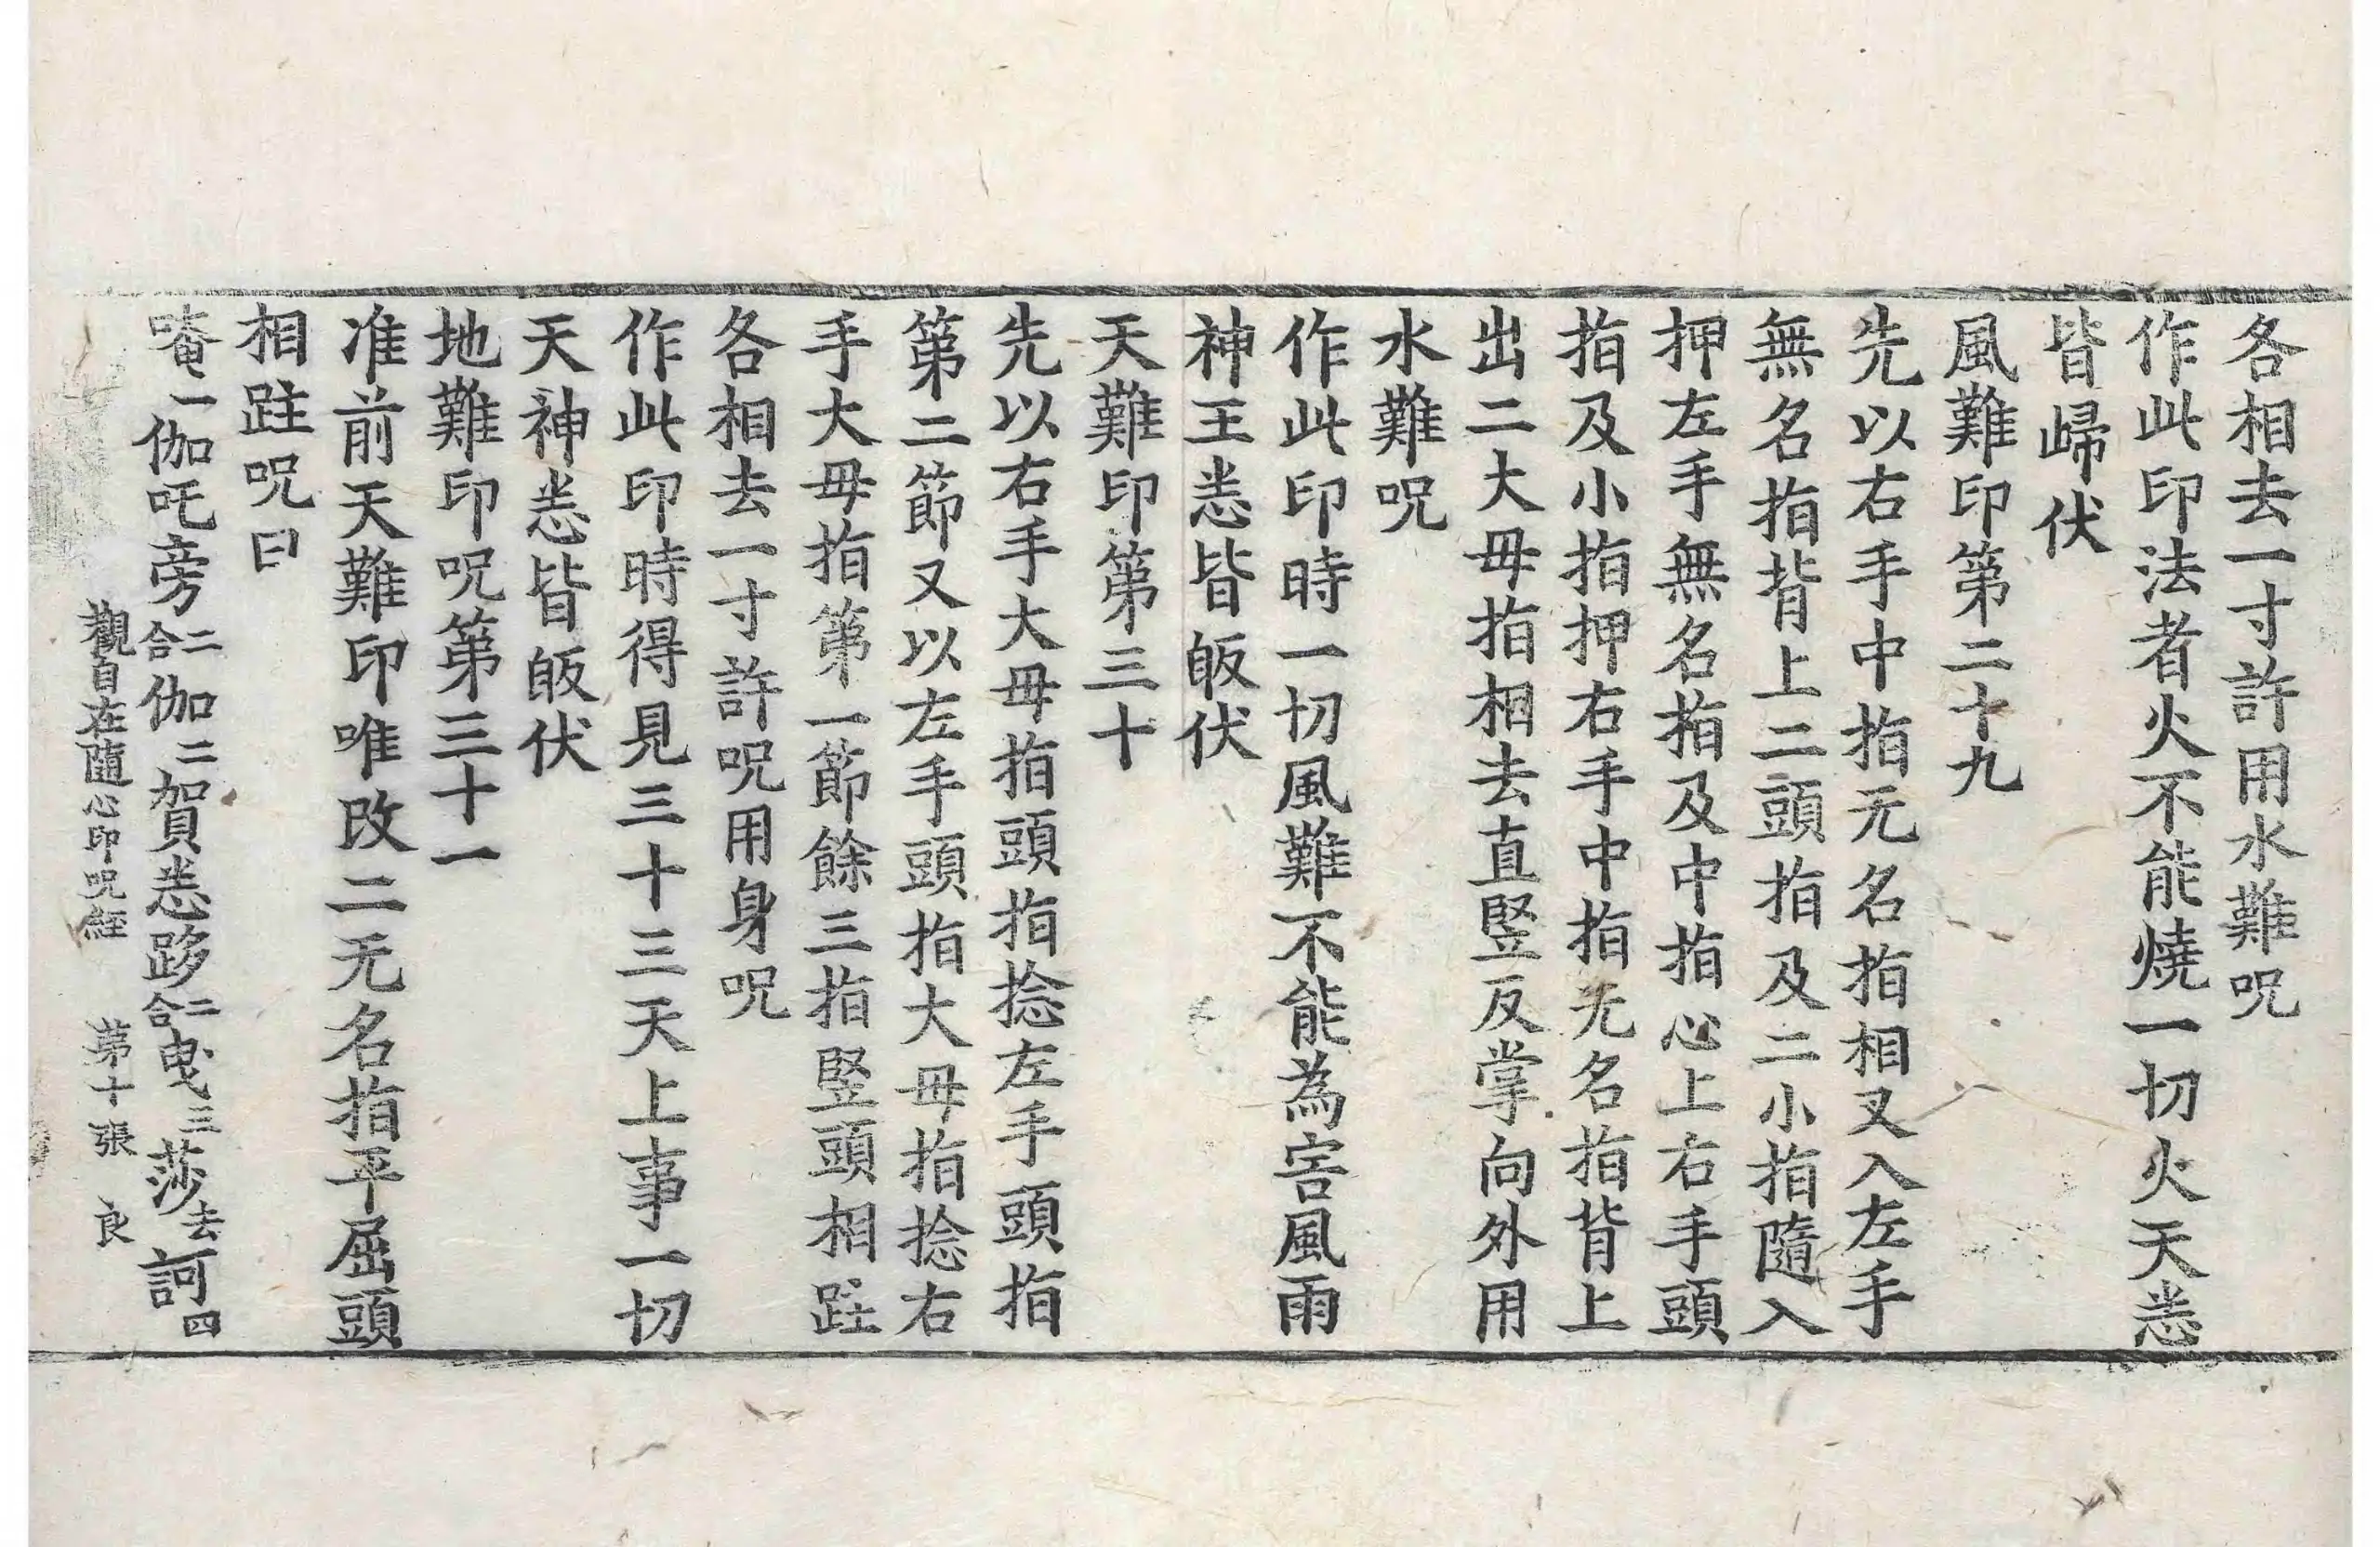 各相去一寸許用水難呪
作此印法者火不能燒一切火天悉
皆歸伏
風難印第二十九
先以右手中指元名指相叉入左手
無名指背上二頭指及二小指隨入
押左手無名指及中指心上右手頭
指及小指押右手中指无名指背上
出二大母指相去直竪反掌向外用
水難呪
作此印時一切風難不能為害風雨
神王悉皆皈伏
天難印第三十
先以右手大母指頭指捻左手頭指
第二節又以左手頭指大母指捻右
手大母指第一節餘三指竪頭相跓
各相去一寸許呪用身呪
作此印時得見三十三天上事一切
天神悉皆皈伏
地難印呪第三十一
准前天難印唯改二无名指平屈頭
相跓呪曰
唵一伽吒旁二合伽二賀悉跢二合曳三莎去訶四
觀自在隨心印呪經 第十張 良